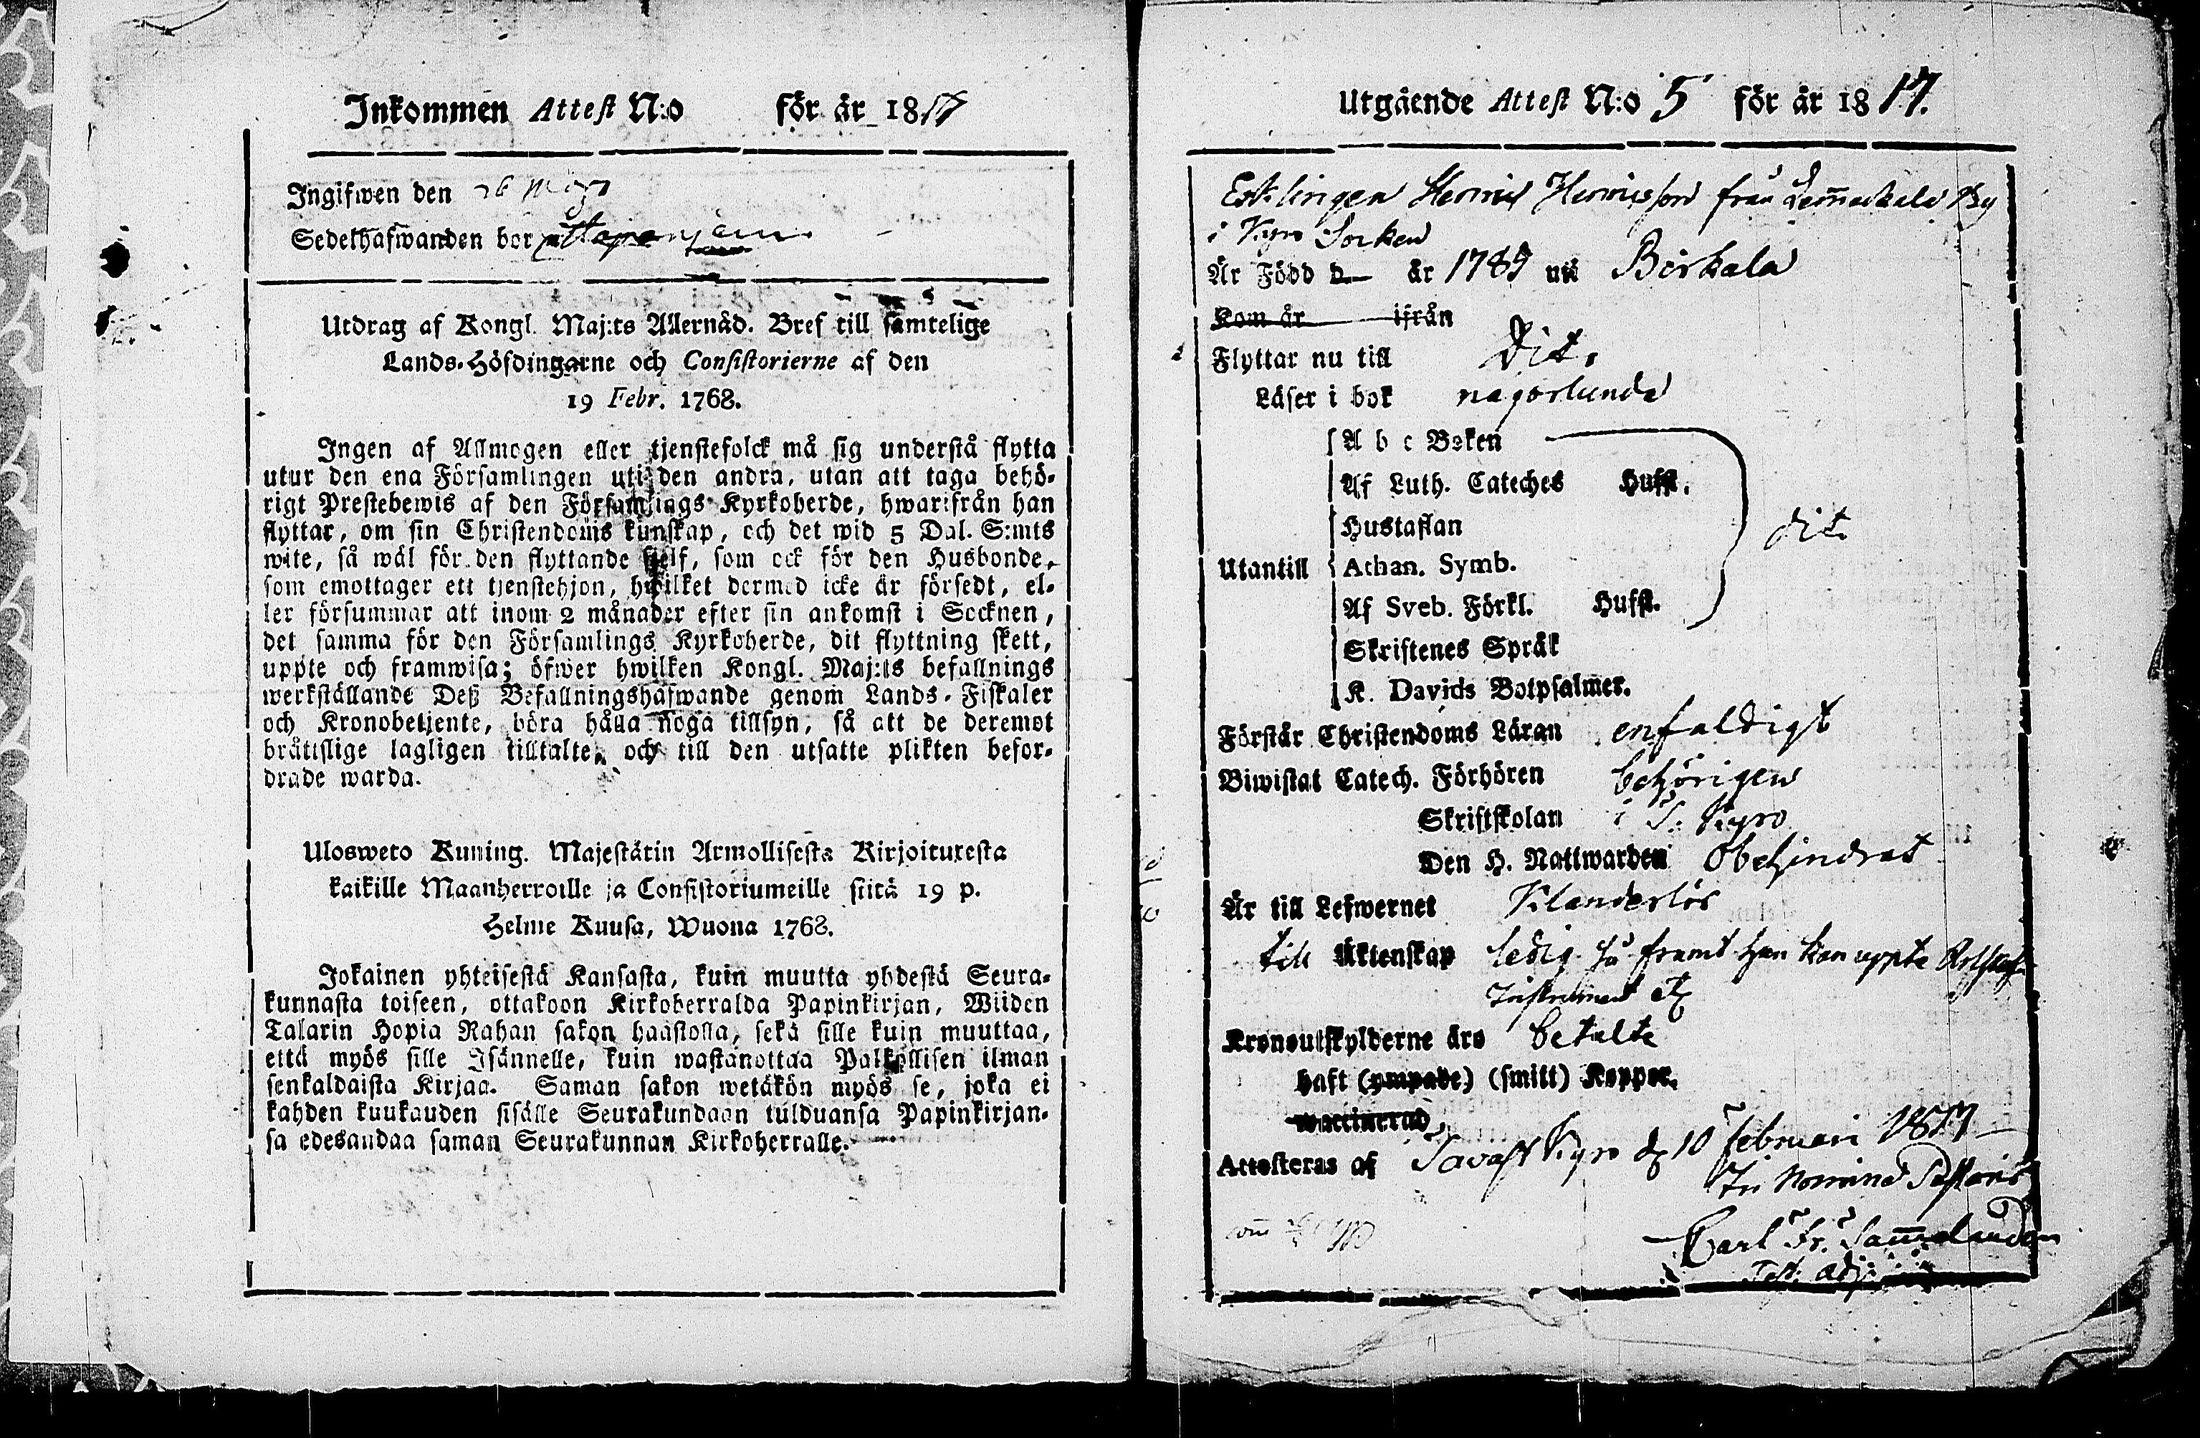 Inkommen Attest N:o för år 1817
Ingifwen den 26 Mars
Sedelhafwanden bor
Utdrag af Kongl. Maj:ts Allernåd. Bref till samtelige
Lands-Höfdingarne och Consistorierne af den
19 Febr. 1768.
Ingen af Allmogen eller tjenstefolck må sig understå flytta
utur den ena Församlingen uti den andra, utan att taga behö-
rigt Prestebewis af den Församlings Kyrkoherde, hwarifrån han
flyttar, om sin Christendoms kunskap, och det wid 5 Dal. S:mts
wite, så wäl för den flyttande sjelf, som ock för den Husbonde,
som emottager ett tjenstehjon, hwilket dermed icke är försedt, el-
ler försummar att inom 2 månader efter sin ankomst i Socknen,
det samma för den Församlings Kyrkoherde, dit flyttning skett,
uppte och framwisa; öfwer hwilken Kongl. Maj:ts befallnings
werkställande Deß Befallningshafwande genom Lands-Fiskaler
och Kronobetjente, böra hålla noga tillsyn, så att de deremot
bråttslige lagligen tilltalte, och till den utsatte plikten befor-
drade warda.
Ulosweto Kuning. Majestätin Armollisesta Kirjoituxesta
kaikille Maanherroille ja Consistoriumeille siitä 19 p.
Helme Kuusa, Wuona 1768.
Jokainen yhteisestä Kansasta, kuin muutta yhdestä Seura-
kunnasta toiseen, ottakoon Kirkoherralda Papinkirjan, Wiiden
Talarin Hopia Rahan sakon haastolla, sekä sille kuin muuttaa,
että myös sille Isännelle, kuin wastanottaa Palkollisen ilman
senkaldaista Kirjaa. Saman sakon wetäkön myös se, joka ei
kahden kuukauden sisälle Seurakundaan tulduansa Papinkirjan-
sa edesandaa saman Seurakunnan Kirkoherralle.
Utgående Attest N:o 5 för år 1817.
Esklingen Henric Henricsson från Lemmakala By
i Kyro Socken
Är Född d— år 1789 uti Birkala
Kom år ifrån
Flyttar nu till Dit.
Läser i bok någorlunda
A b c Boken
Af Luth. Cateches Hufst.
Hustaflan
dit
Utantill Athan. Symb.
Af Sveb. Förkl. Hufst.
Skriftenes Språk
K. Davids Botpsalmer.
Förstår Christendoms Läran enfaldigt
Biwistat Catech. Förhören behörigen
Skriftskolan i T. Kyro
Den H. Nattwarden Obehindrat
Är till Lefwernet Klanderlös
till Äktenskap ledig så framt han kan uppte
Instrument
Kronoutskylderne äro betalte
haft (ympade) (smitt) Koppor.
waccinerad,
Attesteras af Tavast Kyro d 10 Februari 1817
In Nomine Pastoris
Carl Fr.